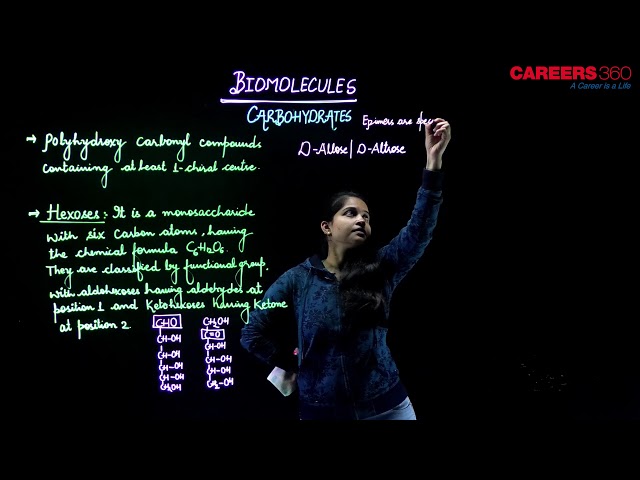 CAREERS360
A Career is a Life
BIOMOLECULES
CARBOHYDRATES
Epimers are
D-Allose / D-Altrose
→ Polyhydroxy Carbonyl compounds
containing atleast 1-chiral centre.
→ Hexoses: It is a monosaccharide
with six Carbon atoms, having
the chemical formula C₆H₁₂O₆.
They are classified by functional group,
with aldohexoses having aldehydes at
position 1 and Ketohexoses having Ketone
at position 2
CHO
CH-OH
CH-OH
CH-OH
CH-OH
CH₂OH
CH₂OH
C=O
CH-OH
CH-OH
CH-OH
CH₂-OH